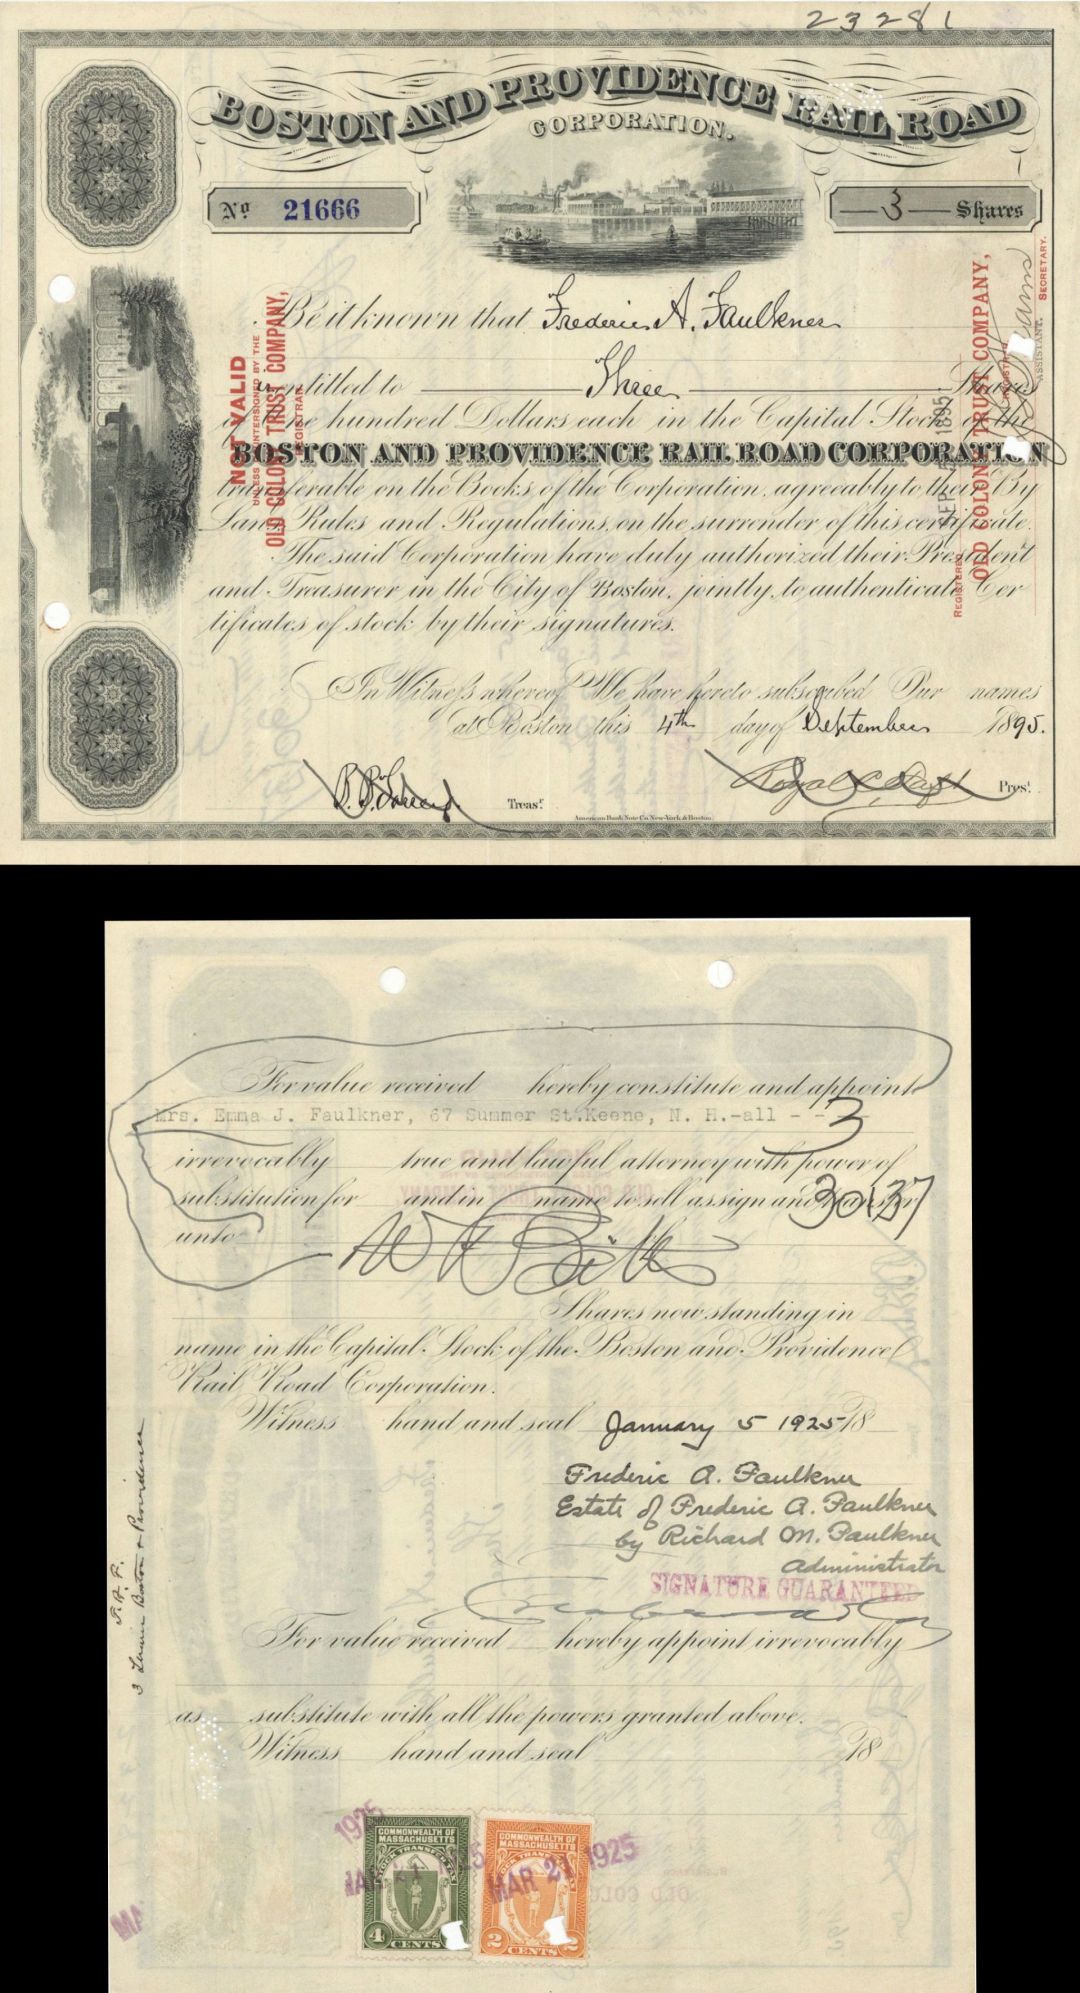 23281
BOSTON AND PROVIDENCE RAIL ROAD
CORPORATION.
No 21666
3 Shares
Be it known that Frederic A. Faulkner
is entitled to Three Shares
of One hundred Dollars each in the Capital Stock of the
BOSTON AND PROVIDENCE RAIL ROAD CORPORATION
transferable on the Books of the Corporation, agreeably to their By
Laws, Rules and Regulations, on the surrender of this certificate.
The said Corporation have duly authorized their President
and Treasurer in the City of Boston, jointly, to authenticate Cer
tificates of stock by their signatures.
In Witness whereof We have hereto subscribed Our names
at Boston this 4th day of September 1895.
Treasr.
Royal C. Taft Prest.
American Bank Note Co. New-York & Boston.
NOT VALID
UNLESS COUNTERSIGNED BY THE
OLD COLONY TRUST COMPANY,
REGISTRAR.
REGISTERED
SEP 1895
OLD COLONY TRUST COMPANY,
REGISTRAR
ASSISTANT SECRETARY.
For value received hereby constitute and appoint
Mrs. Emma J. Faulkner, 67 Summer St. Keene, N. H.-all - - 3
irrevocably true and lawful attorney with power of
substitution for and in name to sell assign and transfer
30137
unto
Shares now standing in
name in the Capital Stock of the Boston and Providence
Rail Road Corporation.
Witness hand and seal January 5 1925 18
Frederic A. Faulkner
Estate of Frederic A. Faulkner
by Richard M. Faulkner
Administrator
SIGNATURE GUARANTEED
For value received hereby appoint irrevocably
as substitute with all the powers granted above.
Witness hand and seal 18
F. A. F.
3 Boston & Providence
COMMONWEALTH OF MASSACHUSETTS
STOCK TRANSFER TAX
4 CENTS
COMMONWEALTH OF MASSACHUSETTS
STOCK TRANSFER TAX
2 CENTS 2
1925
MAR 21 1925
MAR 21 1925
MA